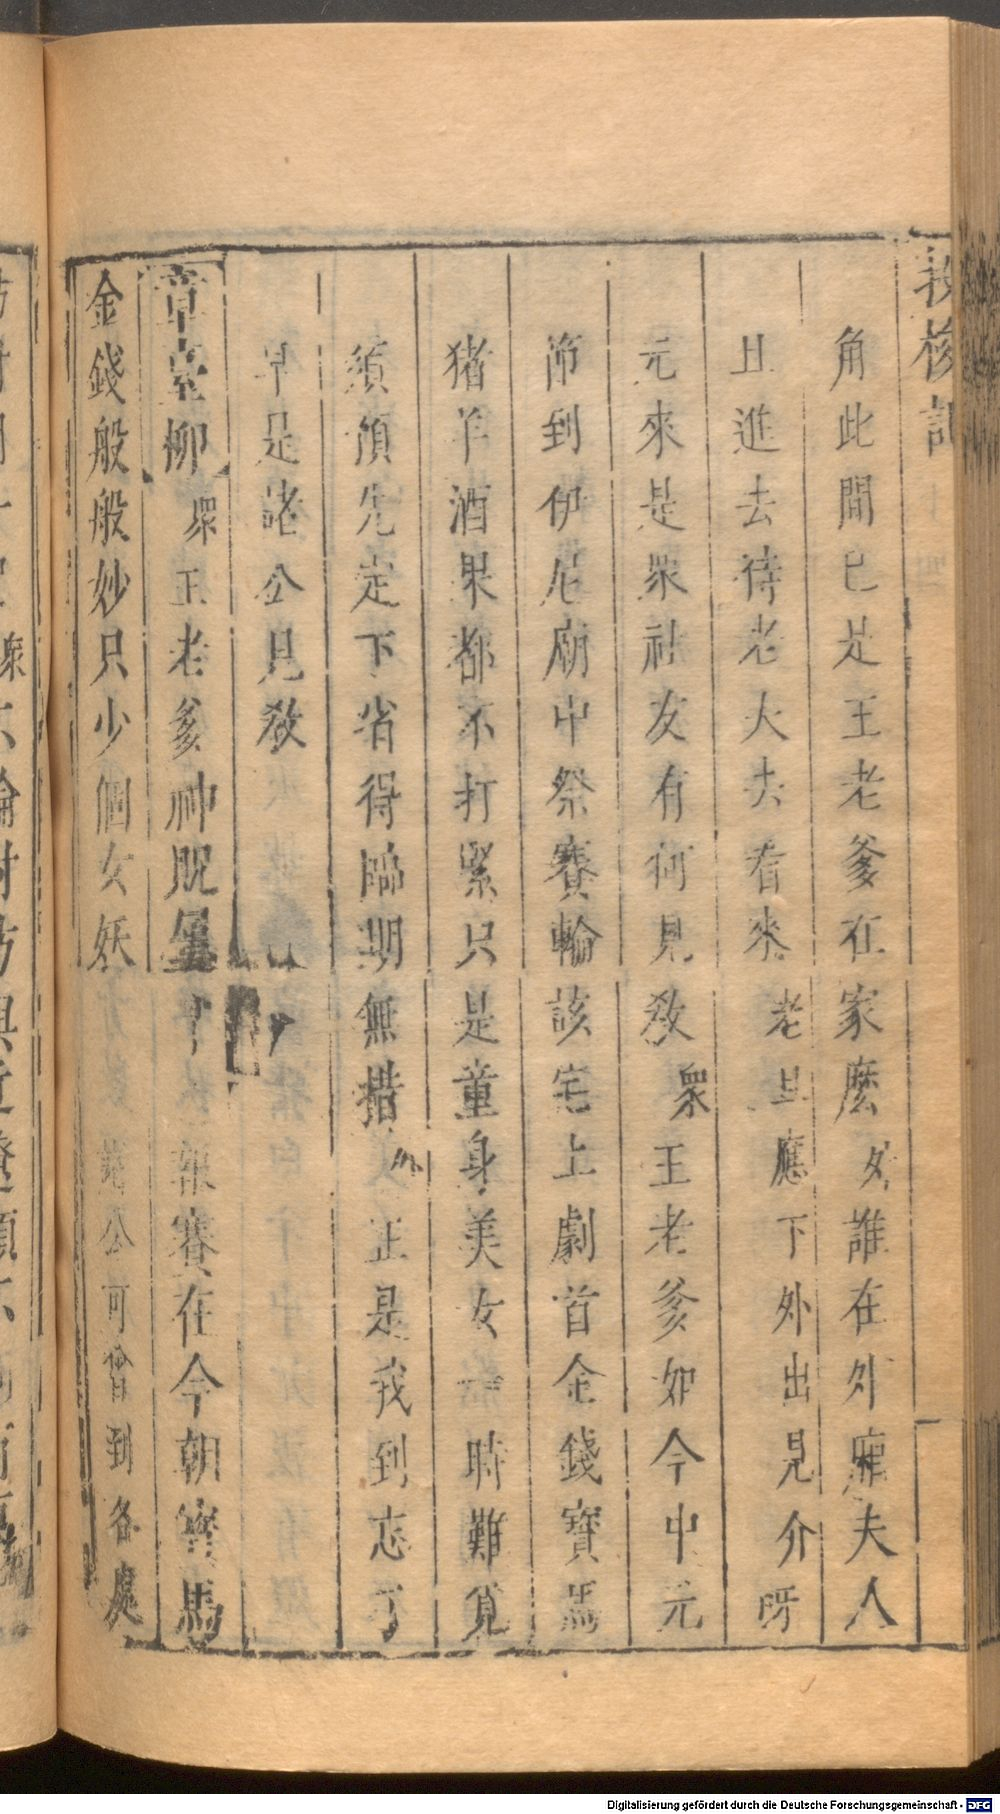 投梭記
角此間已是王老爹在家麼外誰在外廂夫人
且進去待老大去看來老旦應下外出見介呀
元來是眾社友有何見教眾王老爹如今中元
節到伊尼廟中祭賽輪該宅上劇首金錢寶馬
猪羊酒果都不打緊只是童身美女急時難覓
須預先定下省得臨期無措外正是我到忘了
早是諸公見教
章臺柳眾王老爹神貺報賽在今朝寶馬
金錢般般妙只少個女妖公可曾到各處
Digitalisierung gefördert durch die Deutsche Forschungsgemeinschaft - DFG